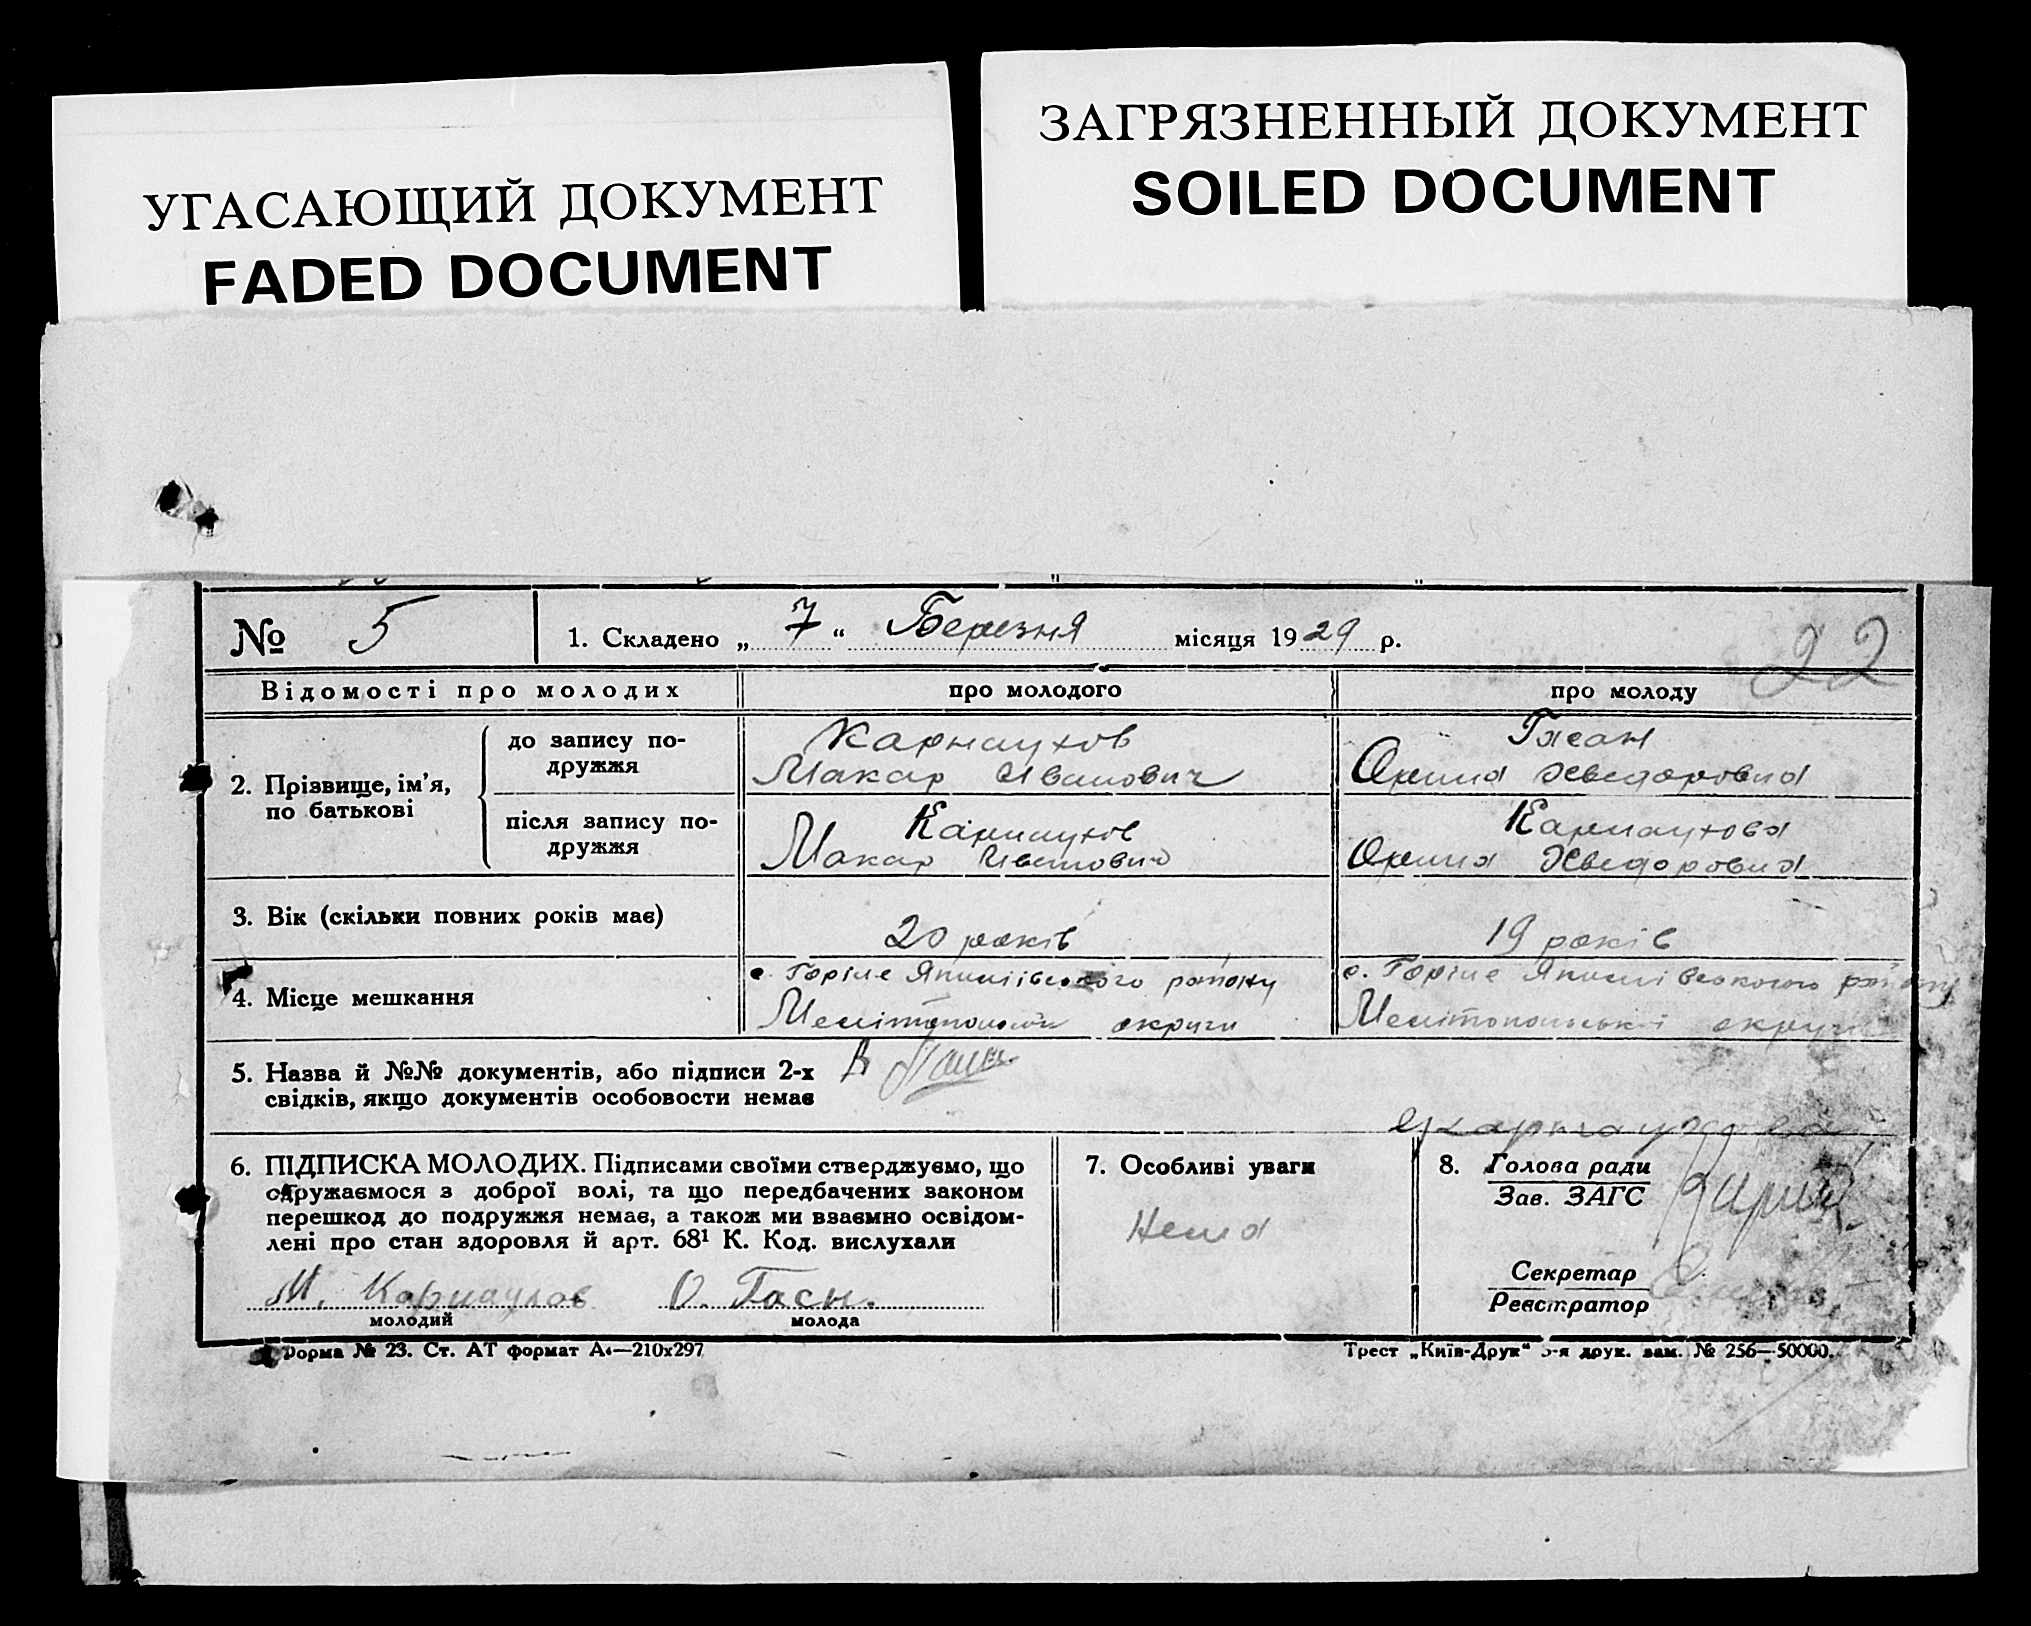 УГАСАЮЩИЙ ДОКУМЕНТ
FADED DOCUMENT
ЗАГРЯЗНЕННЫЙ ДОКУМЕНТ
SOILED DOCUMENT
№ 5
1. Складено „ 7 “ Березня місяця 1929 р.
22
Відомості про молодих
про молодого
про молоду
2. Прізвище, ім'я, по батькові
до запису по-
дружжя
Карнаухов
Макар Иванович
Орина Хведоровна
після запису по-
дружжя
Карнаухов
Макар Иванович
Карнаухова
Орина Хведоровна
3. Вік (скільки повних років має)
20 років
19 років
4. Місце мешкання
с. Горіле Якимівського району
Мелітопольської округи
с. Горіле Якимівського району
Мелітопольської округи
5. Назва й №№ документів, або підписи 2-х
свідків, якщо документів особовости немає
6. ПІДПИСКА МОЛОДИХ. Підписами своїми стверджуємо, що
одружаємося з доброї волі, та що передбачених законом
перешкод до подружжя немає, а також ми взаємно освідом-
лені про стан здоровля й арт. 68¹ К. Код. вислухали
М. Карнаухов
молодий
О. Гасн.
молода
7. Особливі уваги
Нема
8. Голова ради
Зав. ЗАГС
Секретар
Реєстратор
Форма № 23. Ст. АТ формат А4—210х297
Трест „Київ-Друк“ 5-я друк. зам. № 256—50000.